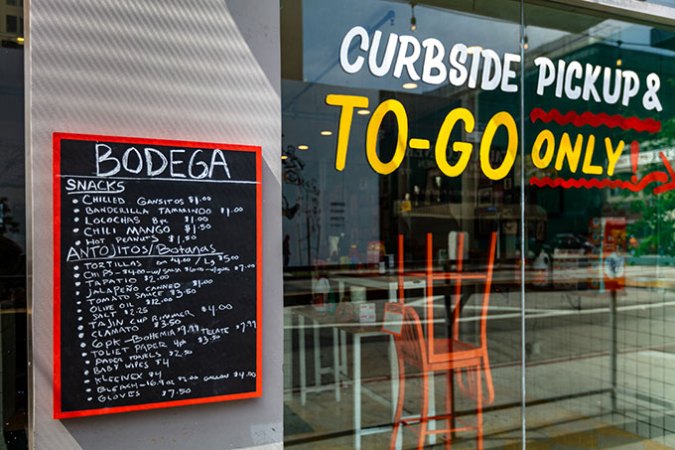 BODEGA
SNACKS
• CHILLED GANSITOS $1.00
• BANDERILLA TAMMINDO $1.00
• LOLOCHAS BP $1.00
• CHILI MANGO $1.50
• HOT PEANUTS $1.50
ANTOJITOS/Botanas
• TORTILLAS sm $4.00 / Lg $5.00
• CHIPS - $4.00 - w/ SALSA $6.00 - w/ $7.00
• TAPATIO $2.00
• JALAPEÑO CANNED $2.00
• TOMATO SAUCE $3.50
• OLIVE OIL $4.00
• SALT $2.25
• TAJIN CUP RIMMER $4.00
• CLAMATO $3.50
• 6 PK - BOHEMIA $9.99 TECATE $7.99
• TOLIET PAPER 4pk $3.50
• PAPER TOWELS $2.50
• BABY WIPES $4
• KLEENEX $4
• BLEACH - 16.9 oz $2.00 GALLON $4.00
• GLOVES $7.50
CURBSIDE PICKUP &
TO-GO ONLY!